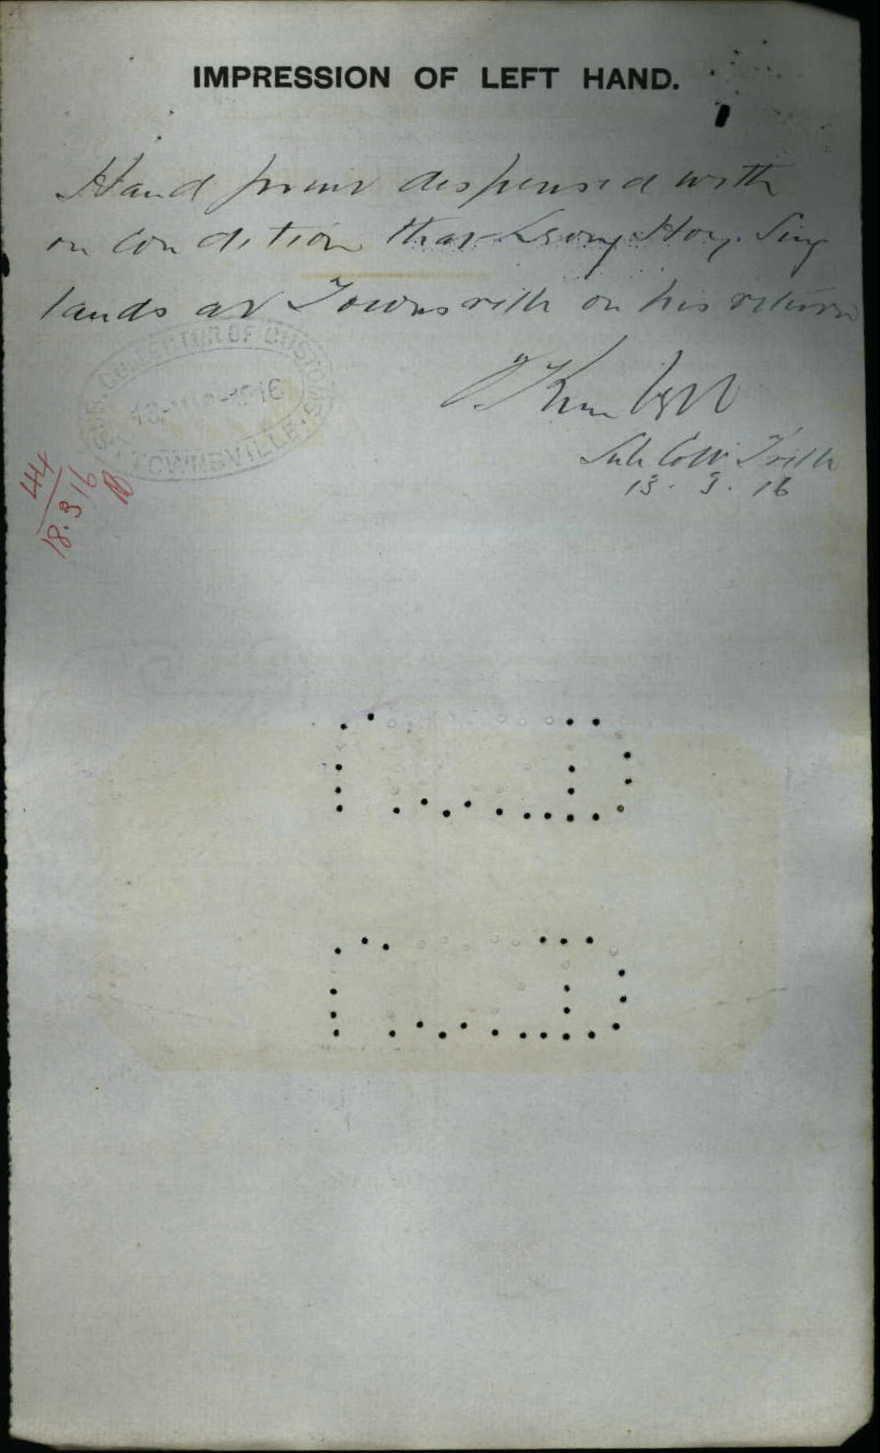 IMPRESSION OF LEFT HAND.
Hand print dispensed with
on condition that Leong Hoy Sing
lands at Townsville on his return
Sub Coll. T'ville
13. 3. 16
SUB-COLLECTOR OF CUSTOMS
13-MAR-1916
TOWNSVILLE
444
18.3.16